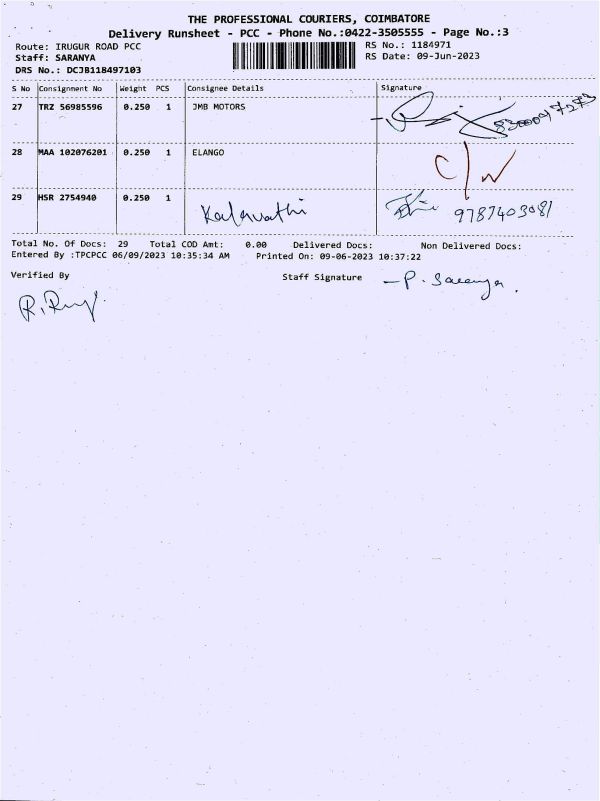 THE PROFESSIONAL COURIERS, COIMBATORE
Delivery Runsheet - PCC - Phone No.:0422-3505555 - Page No.:3
Route: IRUGUR ROAD PCC RS No.: 1184971
Staff: SARANYA RS Date: 09-Jun-2023
DRS No.: DCJB118497103
S No Consignment No Weight PCS Consignee Details Signature
27 TRZ 56985596 0.250 1 JMB MOTORS
28 MAA 102076201 0.250 1 ELANGO C/W
29 HSR 2754940 0.250 1 Kalavathi 9787403081
Total No. Of Docs: 29 Total COD Amt: 0.00 Delivered Docs: Non Delivered Docs:
Entered By :TPCPCC 06/09/2023 10:35:34 AM Printed On: 09-06-2023 10:37:22
Verified By Staff Signature - P. Saranya.